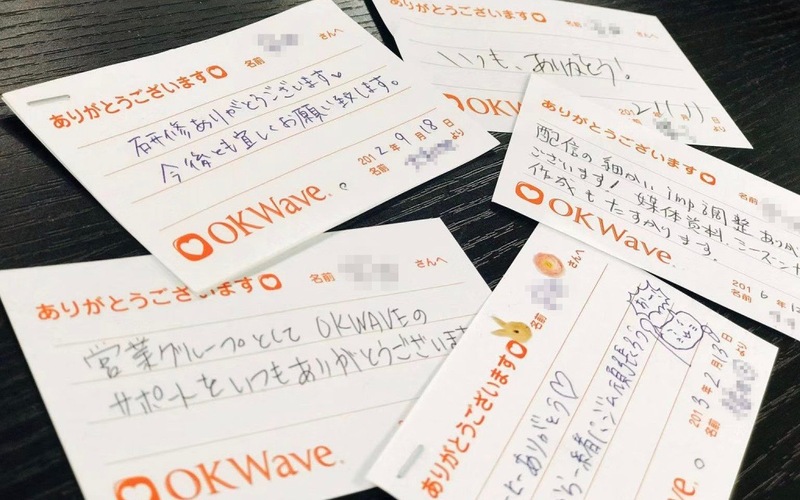 ありがとうございます
名前
さんへ
研修ありがとうございます。
今後とも宜しくお願い致します。
2012年9月18日
名前
より
OKWave
ありがとうございます
名前
さんへ
いつも、ありがとう!
21(11)
OKWave
より
ありがとうございます
名前
配信の細かい imp調整 ありが
ございます! 媒体資料、
作成もたすかります。
2016年
名前
OKWave
ありがとうございます
名前
さんへ
営業グループとして OKWAVEの
サポートをいつもありがとうございま
OKWave
ありがとうございます
名前
さんへ
ありがとう♡
一緒に
頑張ろう
おーっ
2013年2月13日
名前
より
OKWave